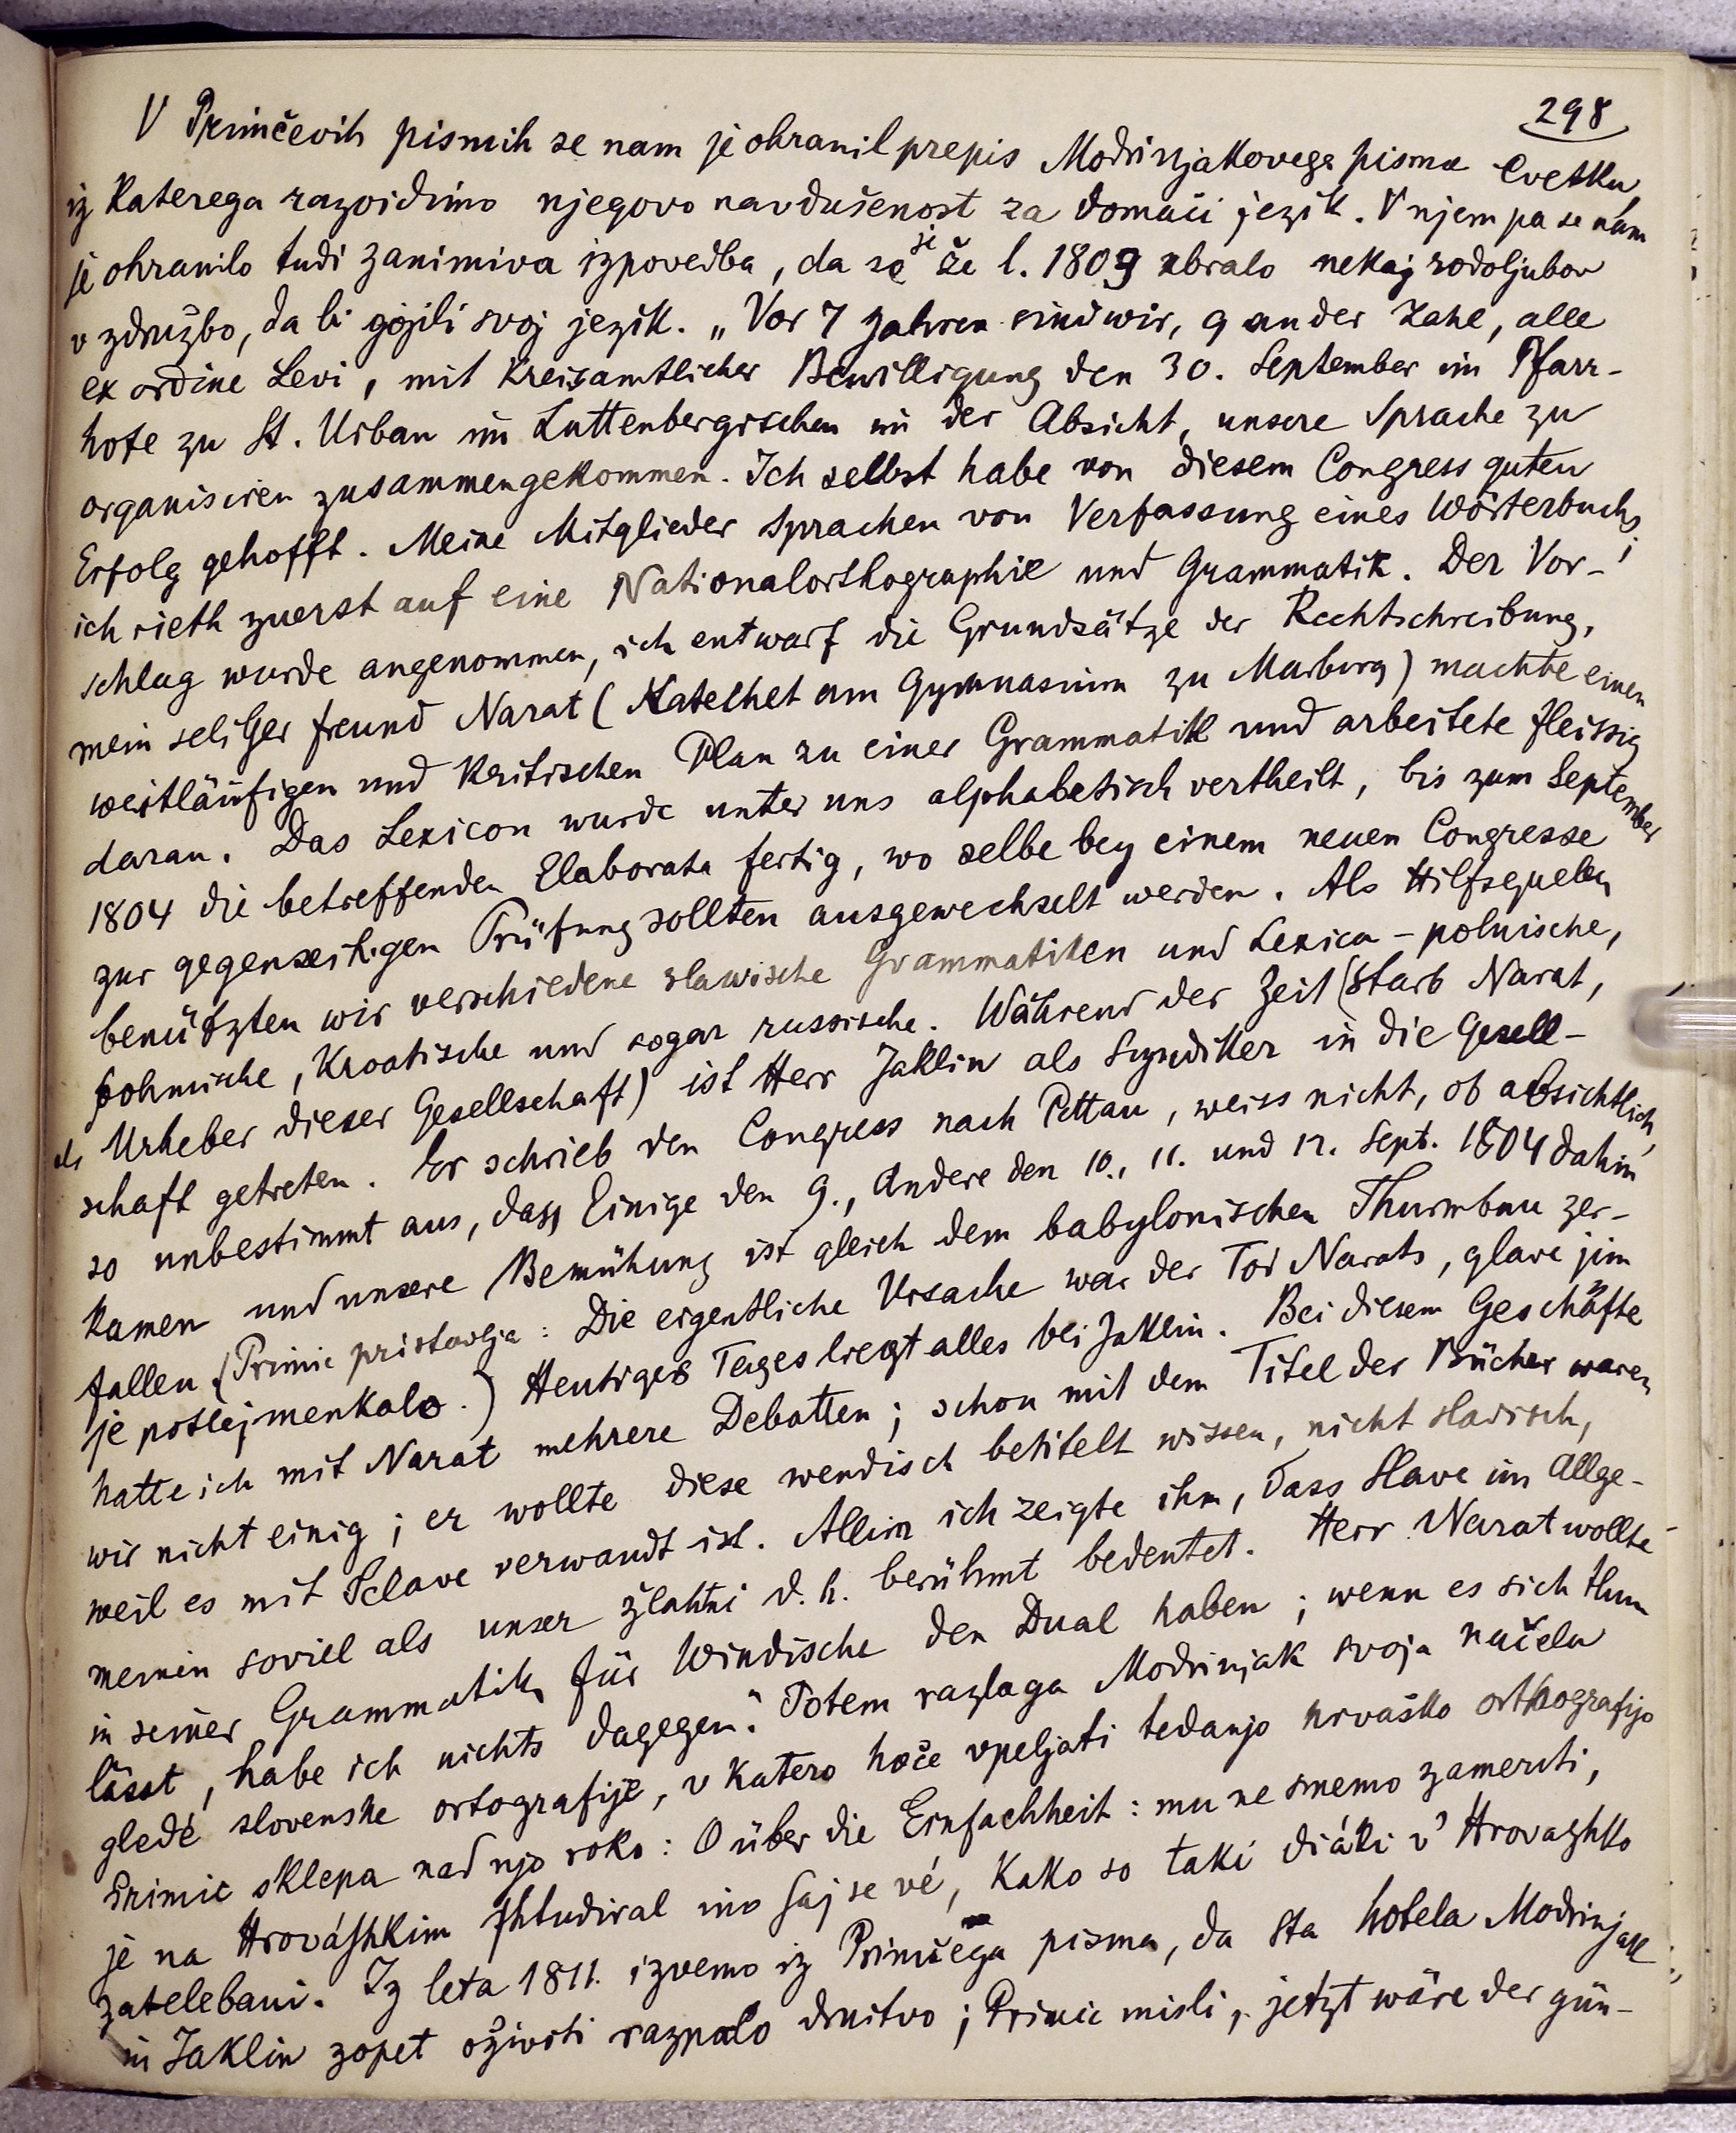 298
V Primčevih pismih se nam je ohranil prepis Modrinjakovega pisma Cvetku,
iz katerega razvidimo njegovo navdušenost za domači jezik. V njem pa se nam
je ohranilo tudi zanimiva izpovedba, da se je že l. 1803 zbralo nekaj rodoljubov
v združbo, da bi gojili svoj jezik. „Vor 7 Jahren sind wir, 9 an der Zahl, alle
ex ordine Levi, mit kreisamtlicher Bewilligung den 30. September im Pfarr-
hofe zu St. Urban im Luttenbergischen in der Absicht, unsere Sprache zu
organisiren zusammengekommen. Ich selbst habe von diesem Congress guten
Erfolg gehofft. Meine Mitglieder sprachen von Verfassung eines Wörterbuchs;
ich rieth zuerst auf eine Nationalorthographie und Grammatik. Der Vor-
schlag wurde angenommen, ich entwarf die Grundsätze der Rechtschreibung,
mein seliger Freund Narat (Katechet am Gymnasium zu Marburg) machte einen
weitläufigen und kritischen Plan zu einer Grammatik und arbeitete fleissig
daran. Das Lexicon wurde unter uns alphabetisch vertheilt, bis zum September
1804 die betreffenden Elaborata fertig, wo selbe bey einem neuen Congresse
zur gegenseitigen Prüfung sollten ausgewechselt werden. Als Hilfsquellen
benützten wir verschiedene slawische Grammatiken und Lexica – polnische,
böhmische, kroatische und sogar russische. Während der Zeit (starb Narat,
als Urheber dieser Gesellschaft) ist Herr Jaklin als Syndiker in die Gesell-
schaft getreten. Er schrieb den Congress nach Pettau, weiss nicht, ob absichtlich,
so unbestimmt aus, dass Einige den 9., Andere den 10., 11. und 12. Sept. 1804 dahin
kamen und unsere Bemühung ist gleich dem babylonischen Thurmbau zer-
fallen. (Primic pristavlja: Die eigentliche Ursache war der Tod Narats, glave jim
je poslej menkalo.) Heutiges Tages liegt alles bei Jaklin. Bei diesem Geschäfte
hatte ich mit Narat mehrere Debatten; schon mit dem Titel der Bücher waren
wir nicht einig; er wollte diese wendisch betitelt wissen, nicht slavisch,
weil es mit Sclave verwandt ist. Allein ich zeigte ihm, dass Slave im Allge-
meinen soviel als unser žlahtni d. h. berühmt bedeutet. Herr Narat wollte
in seiner Grammatik für Windische den Dual haben; wenn es sich thun
lässt, habe ich nichts dagegen." Potem razlaga Modrinjak svoja načela
gledé slovenske ortografije, v katero hoče vpeljati tedanjo hrvaško orthografijo
Primic sklepa nad njo roko: O über die Einfachheit: mu ne smemo zameriti,
je na Hrováshkim shtudiral ino saj se vé, kako so taki diáki v' Hrovazhko
zatelebani. Iz leta 1811. izvemo iz Primčega pisma, da sta hotela Modrinjak
in Jaklin zopet oživiti razpalo društvo; Primic misli, „jetzt wäre der gün-